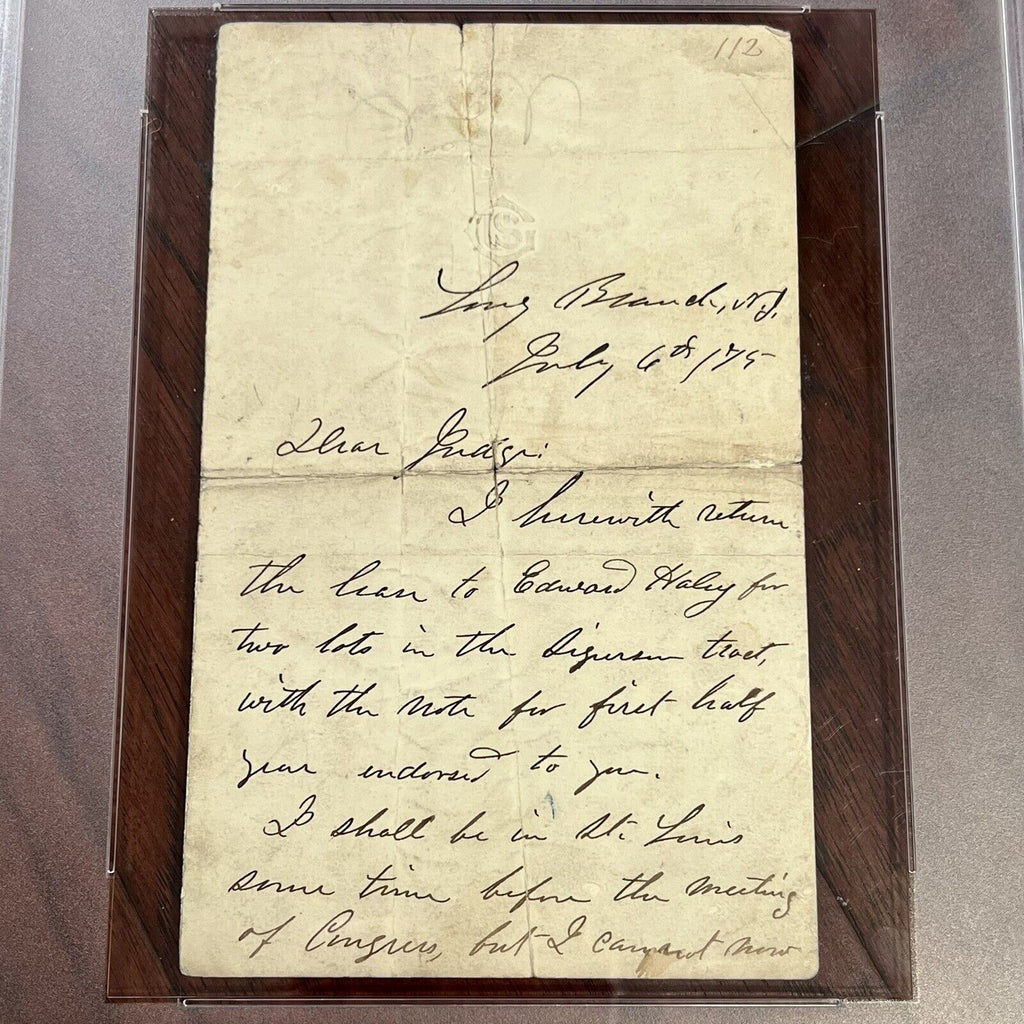 112
USG
Long Branch, N.J.
July 6th /75
Dear Judge:
I herewith return
the lease to Edward Haley for
two lots in the Sigerson tract,
with the note for first half
year endorsed to you.
I shall be in St. Louis
some time before the meeting
of Congress, but I cannot now